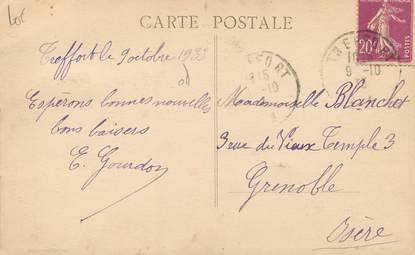 Lot
CARTE POSTALE
Treffort le 9 octobre 1933
Espérons bonnes nouvelles
bons baisers
E. Gourdon
Mademoiselle Blanchet
3 rue du Vieux Temple 3
Grenoble
Isère
20c
POSTES
TREFFORT
9-10